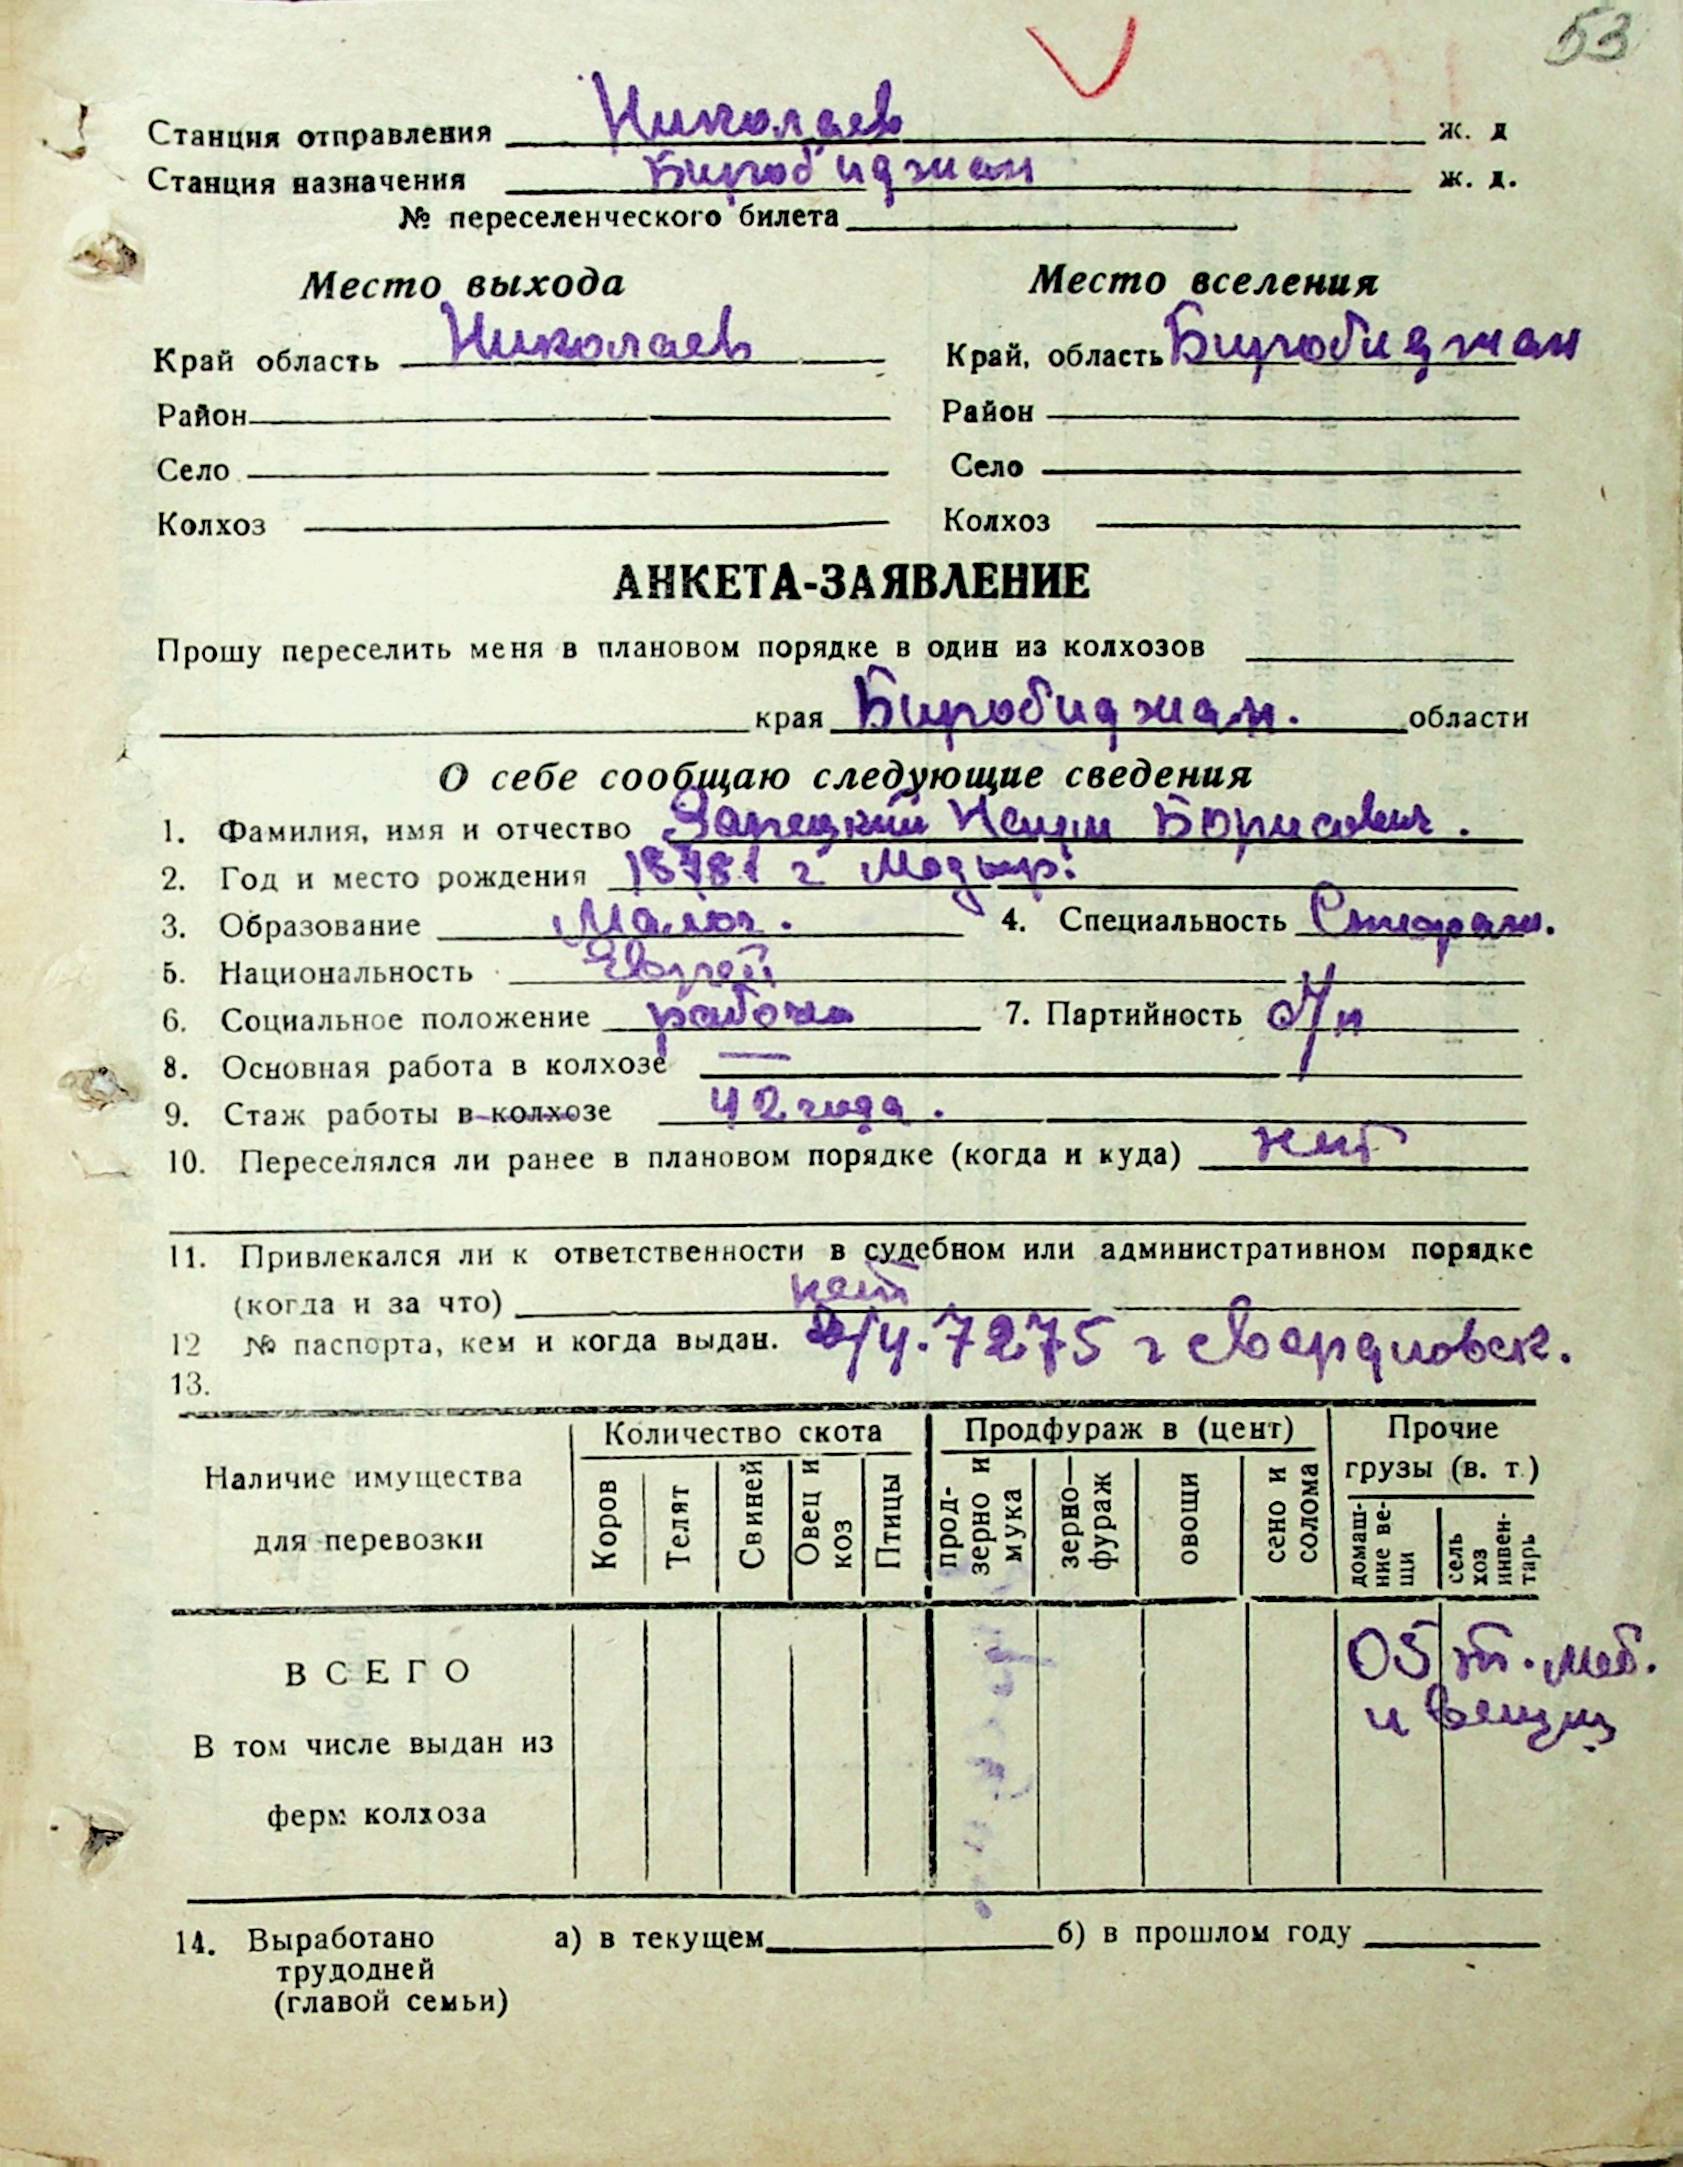 53
Станция отправления Николаев ж. д
Станция назначения Биробиджан ж. д.
№ переселенческого билета
Место выхода Место вселения
Край область Николаев Край, область Биробиджан
Район Район
Село Село
Колхоз Колхоз
АНКЕТА-ЗАЯВЛЕНИЕ
Прошу переселить меня в плановом порядке в один из колхозов
края Биробиджан. области
О себе сообщаю следующие сведения
1. Фамилия, имя и отчество Зарецкий Борисович.
2. Год и место рождения г Мозырь.
3. Образование Малог. 4. Специальность
5. Национальность Еврей
6. Социальное положение рабочий 7. Партийность б/п
8. Основная работа в колхозе —
9. Стаж работы в колхозе 42 года.
10. Переселялся ли ранее в плановом порядке (когда и куда) нет
11. Привлекался ли к ответственности в судебном или административном порядке
(когда и за что) нет
12 № паспорта, кем и когда выдан. 7275 г Свердловск.
13.
Наличие имущества для перевозки Количество скота Продфураж в (цент) Прочие грузы (в. т.)
Коров Телят Свиней Овец и коз Птицы прод-зерно и мука зерно—фураж овощи сено и солома домаш-ние ве-щи сель хоз инвен-тарь
ВСЕГО 05 т. меб.
и вещи
В том числе выдан из
ферм колхоза
14. Выработано а) в текущем б) в прошлом году
трудодней
(главой семьи)